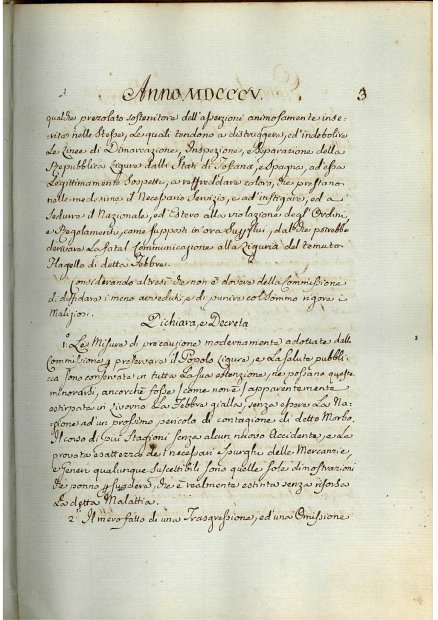 Anno MDCCCV. 3
qualche prezolato sostenitore dell'asserzioni animosamente inse-
rite nelle Stesse, Le quali tendono a distruggere, ed indebolire
Le Linee di Dimarcazione, Inspezione, e Separazione della
Repubblica Ligure dalli Stati di Toscana, e Spagna, ad essa
Legittimamente Sospette, a raffreddare coloro, che prestano
nelle medesime il Necessario Servizio, e ad instigare, ed a
Sedurre il Nazionale, ed Estero alla violazione degl'Ordini,
e Regolamenti, come supposti in'ora Superflui, dal che potrebbe
derivare La fatal Communicazione alla Liguria del temuto
Flagello di detta Febbre.
Considerando altresì che non è dovere della Commissione
di diffidare i meno avveduti, e di punire col Sommo rigore i
Maliziosi.
Dichiara, e Decreta
1.° Le Misure di precauzione modernamente adottate dalla
Commissione p preservare il Popolo Ligure, e La Salute pubbli-
ca sono conservate in tutta La Sua estenzione, ne possano queste
minorarsi, ancorchè fosse, come non è, apparentemente
estirpata in Livorno La Febbre gialla, senza esporre La Na-
zione ad un prossimo pericolo di contagione di detto Morbo.
Il corso di più Stagioni Senza alcun nuovo Accidente, e La
provata esattezza de i necessari Spurghi delle Mercanzie,
e Generi qualunque Suscettibili Sono quelle Sole dimostrazioni
che ponno Suggerire, che è realmente estinta senza risorsa
La detta Malattia.
2.° Il mero fatto di una Trasgressione, ed'una Omissione